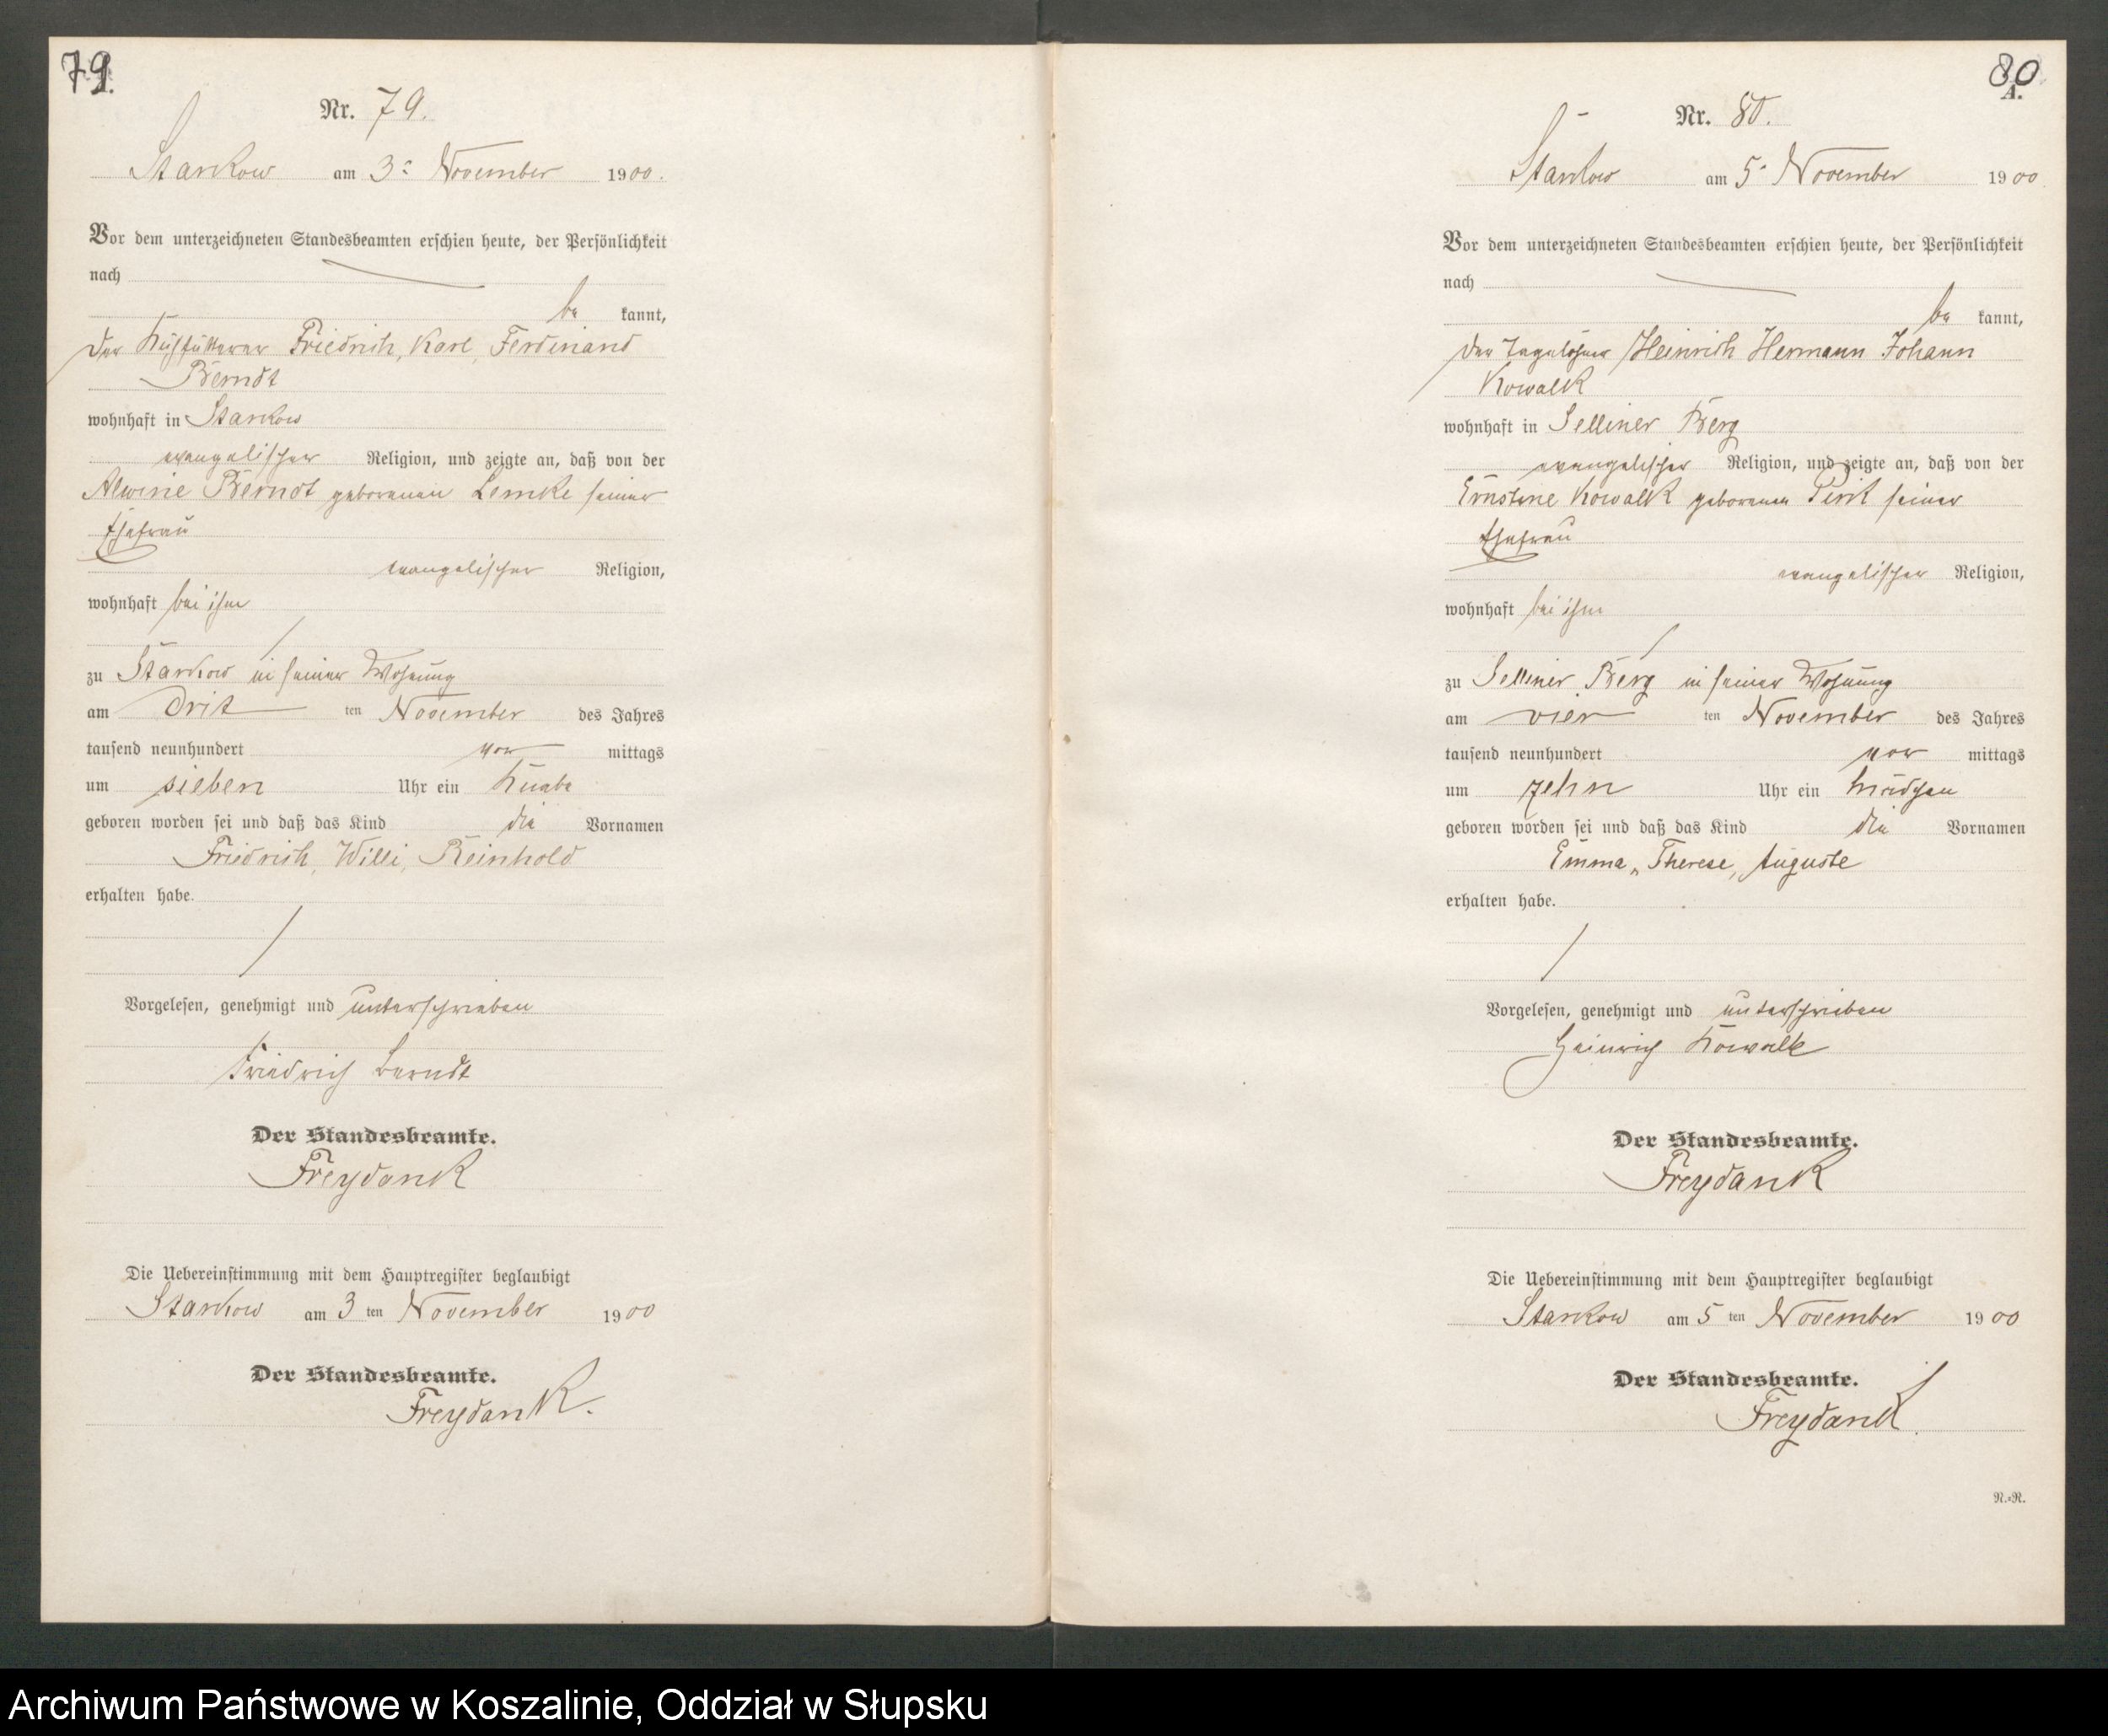 79.
Nr. 79.
Starkow am 3ᵗ November 1900.
Vor dem unterzeichneten Standesbeamten erschien heute, der Persönlichkeit
nach
be kannt,
der Kuhfütterer Friedrich, Karl, Ferdinand
Berndt
wohnhaft in Starkow
evangelischer Religion, und zeigte an, daß von der
Alwine Berndt geborenen Lemke seiner
Ehefrau
evangelischer Religion,
wohnhaft bei ihm
zu Starkow in seiner Wohnung
am drit ten November des Jahres
tausend neunhundert vor mittags
um sieben Uhr ein Knabe
geboren worden sei und daß das Kind die Vornamen
Friedrich, Willi, Reinhold
erhalten habe.
Vorgelesen, genehmigt und unterschrieben
Friedrich Berndt
Der Standesbeamte.
Freydank
Die Uebereinstimmung mit dem Hauptregister beglaubigt
Starkow am 3 ten November 1900
Der Standesbeamte.
Freydank.
80
A.
Nr. 80.
Starkow am 5ᵗ November 1900
Vor dem unterzeichneten Standesbeamten erschien heute, der Persönlichkeit
nach
be kannt,
der Tagelöhner Heinrich Hermann Johann
Kowalk
wohnhaft in Selliner Berg
evangelischer Religion, und zeigte an, daß von der
Ernstine Kowalk geborenen seiner
Ehefrau
evangelischer Religion,
wohnhaft bei ihm
zu Selliner Berg in seiner Wohnung
am vier ten November des Jahres
tausend neunhundert vor mittags
um zehn Uhr ein Mädchen
geboren worden sei und daß das Kind die Vornamen
Emma, Therese, Auguste
erhalten habe.
Vorgelesen, genehmigt und unterschrieben
Heinrich Kowalk
Der Standesbeamte.
Freydank
Die Uebereinstimmung mit dem Hauptregister beglaubigt
Starkow am 5 ten November 1900
Der Standesbeamte.
Freydank.
N.=R.
Archiwum Państwowe w Koszalinie, Oddział w Słupsku